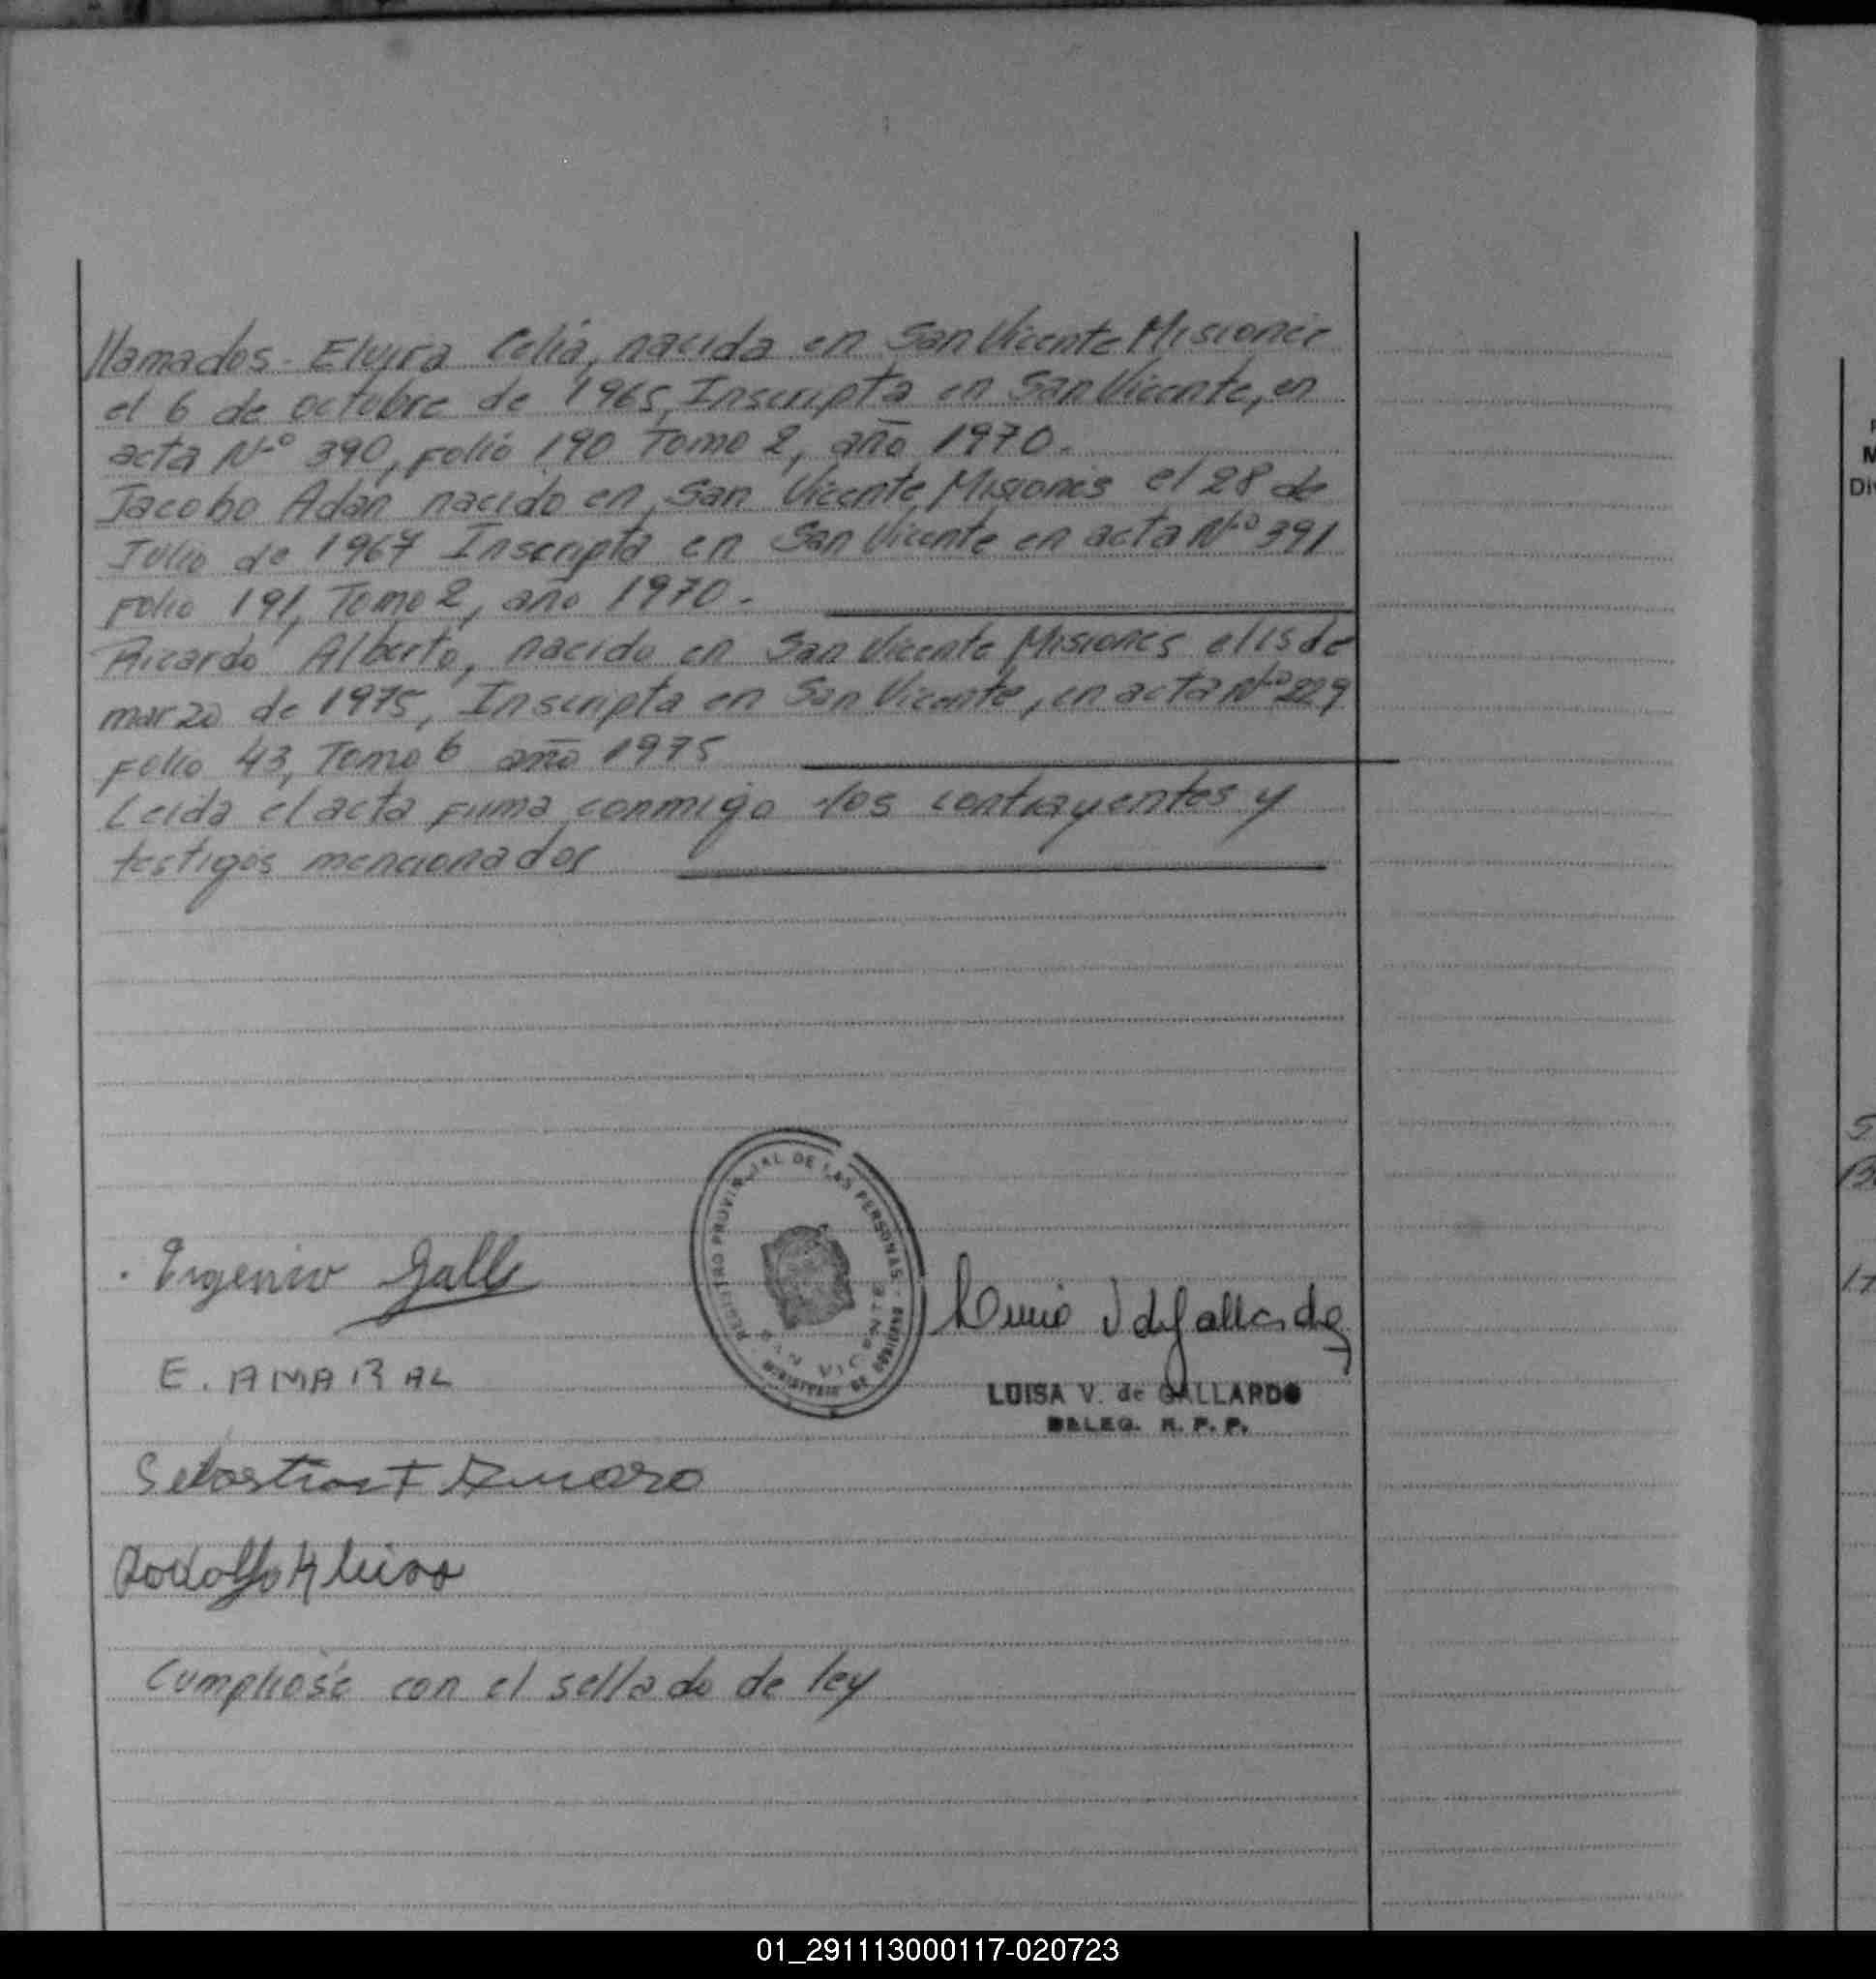 llamados - Elvira Celia, nacida en San Vicente Misiones
el 6 de octubre de 1965, Inscripta en San Vicente, en
acta Nº 390, Folio 190 Tomo 2, año 1970.
Jacobo Adan nacido en San Vicente Misiones el 28 de
Julio de 1967 Inscripta en San Vicente en acta Nº 391
Folio 191, Tomo 2, año 1970.
Ricardo Alberto, nacido en San Vicente Misiones el 15 de
marzo de 1975, Inscripta en San Vicente, en acta Nº 229
Folio 43, Tomo 6 año 1975
Leida el acta Firma conmigo los contrayentes y
testigos mencionados
REGISTRO PROVINCIAL DE LAS PERSONAS
SAN VICENTE
MINISTERIO DE GOBIERNO
Eugenio Galle
E. AMARAL
LUISA V. de GALLARDO
DELEG. R. P. P.
Sebastian F
Rodolfo
Cumpliose con el sellado de ley
M
Div
01_291113000117-020723